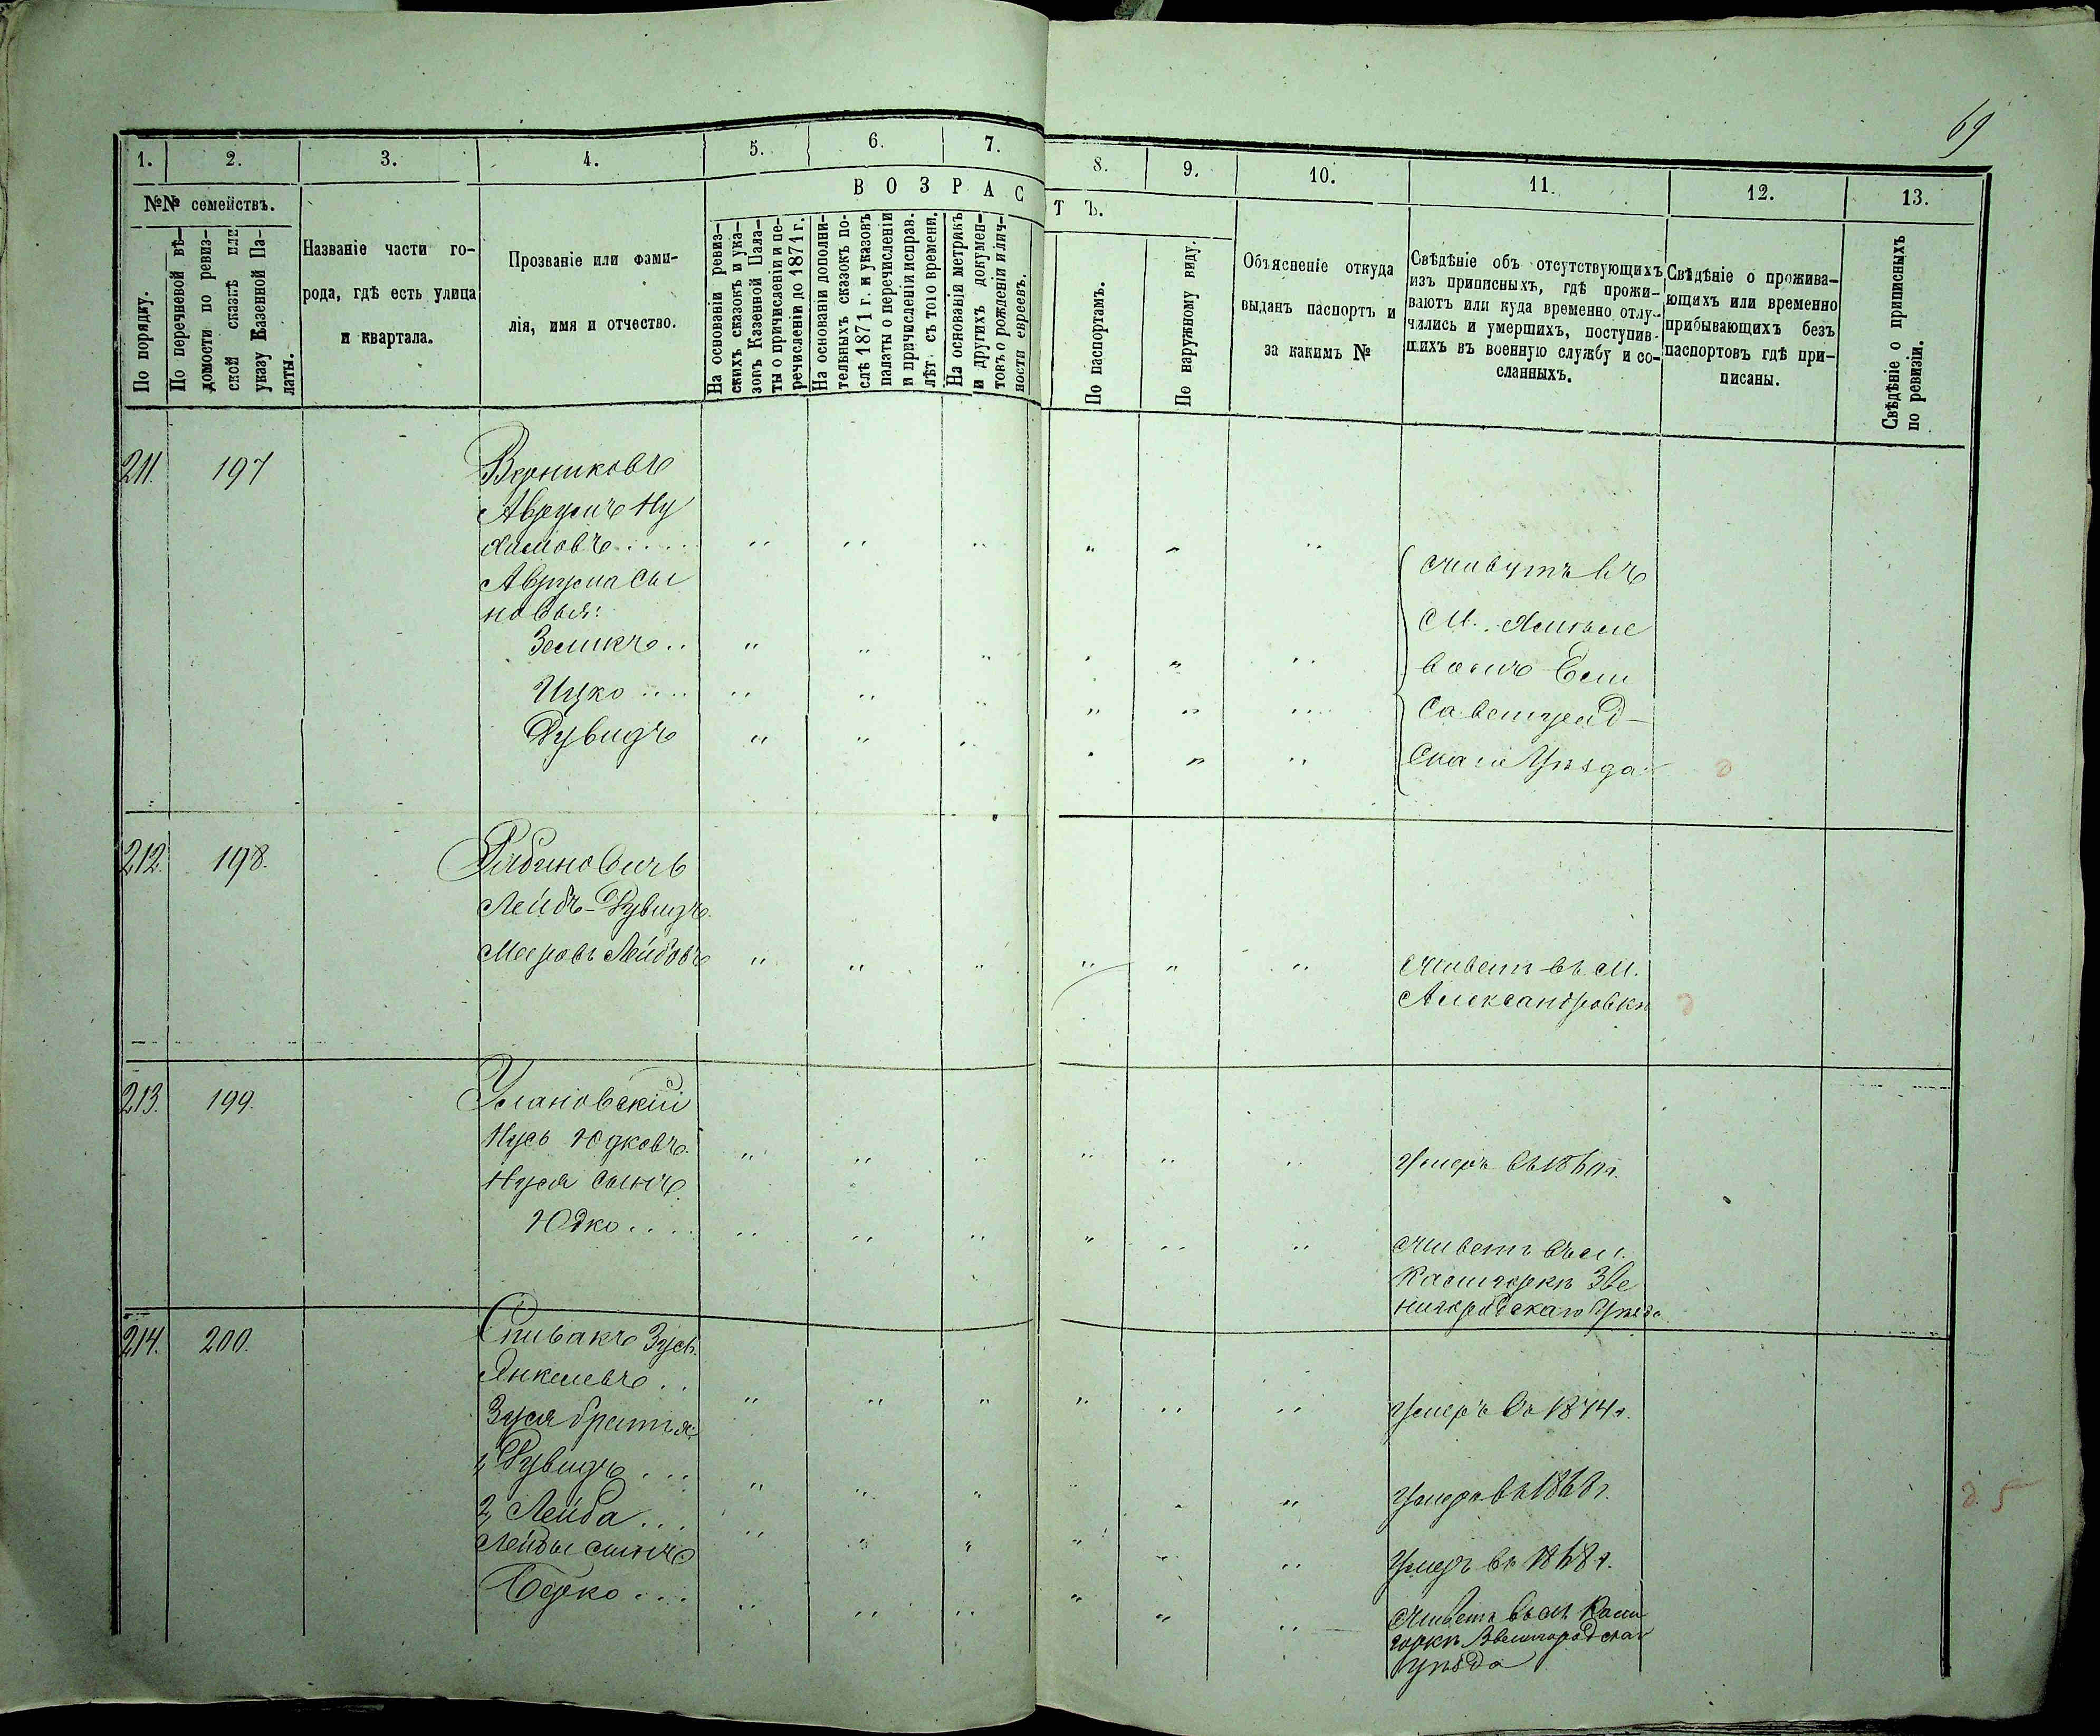 69
1. 2. 3. 4. 5. 6. 7. 8. 9. 10. 11. 12. 13.
№№ семействъ.
В О З Р А С Т Ъ.
По порядку.
По перечневой вѣ-
домости по ревиз-
ской сказкѣ или
указу Казенной Па-
латы.
Названіе части го-
рода, гдѣ есть улица
и квартала.
Прозваніе или фами-
лія, имя и отчество.
На основаніи ревиз-
скихъ сказокъ и ука-
зовъ Казенной Пала-
ты о причисленіи и пе-
речисленіи до 1871 г.
На основаніи дополни-
тельныхъ сказокъ по-
слѣ 1871 г. и указовъ
палаты о перечисленіи
и причисленіи исправ.
лѣт съ того времени.
На основаніи метрикъ
и другихъ докумен-
товъ о рожденіи и лич-
ности евреевъ.
По паспортамъ.
По наружному виду.
Объясненіе откуда
выданъ паспортъ и
за какимъ №
Свѣдѣніе объ отсутствующихъ
изъ приписныхъ, гдѣ прожи-
ваютъ или куда временно отлу-
чились и умершихъ, поступив-
шихъ въ военную службу и со-
сланныхъ.
Свѣдѣніе о прожива-
ющихъ или временно
прибывающихъ безъ
паспортовъ гдѣ при-
писаны.
Свѣдѣніе о приписныхъ
по ревизіи.
211. 197
Верниковъ
Аврумъ Ну
химовъ.....
Аврума сы
новья:
Зеликъ..
Ицко....
Дувидъ
живутъ въ
М.
Ели
саветград-
скаго Уѣзда
212. 198.
Рабиновичъ
Лейбъ-Дувидъ
Мееровъ Лейбовъ
живетъ въ М.
Александровкѣ
213. 199.
Улановскій
Нусь Юдковъ
Нуся сынъ
Юдко....
Умеръ въ
живетъ въ м.
Калигоркѣ Зве
нигородскаго Уѣзда
214. 200.
Спивакъ Зусь
Янкелевъ..
Зуся братья:
1, Дувидъ...
2, Лейба...
Лейбы сынъ
Берко...
Умеръ въ 1874 г.
Умеръ въ 1868 г.
Умеръ въ 1868 г.
живетъ въ м. Кали
горкѣ Звенигородскаг
уѣзда